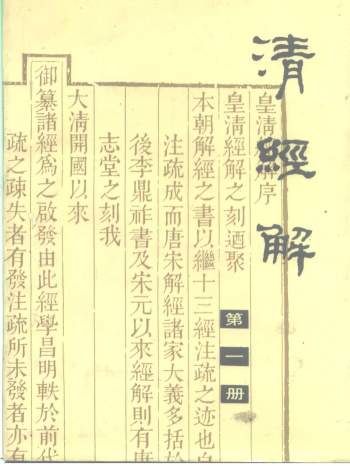 清經解
第一册
皇清經解序
皇清經解之刻迺聚
本朝解經之書以繼十三經注疏之迹也自
注疏成而唐宋解經諸家大義多括於
後李鼎祚書及宋元以來經解則有唐
志堂之刻我
大清開國以來
御纂諸經爲之啟發由此經學昌明軼於前代
疏之疎失者有發注疏所未發者亦有